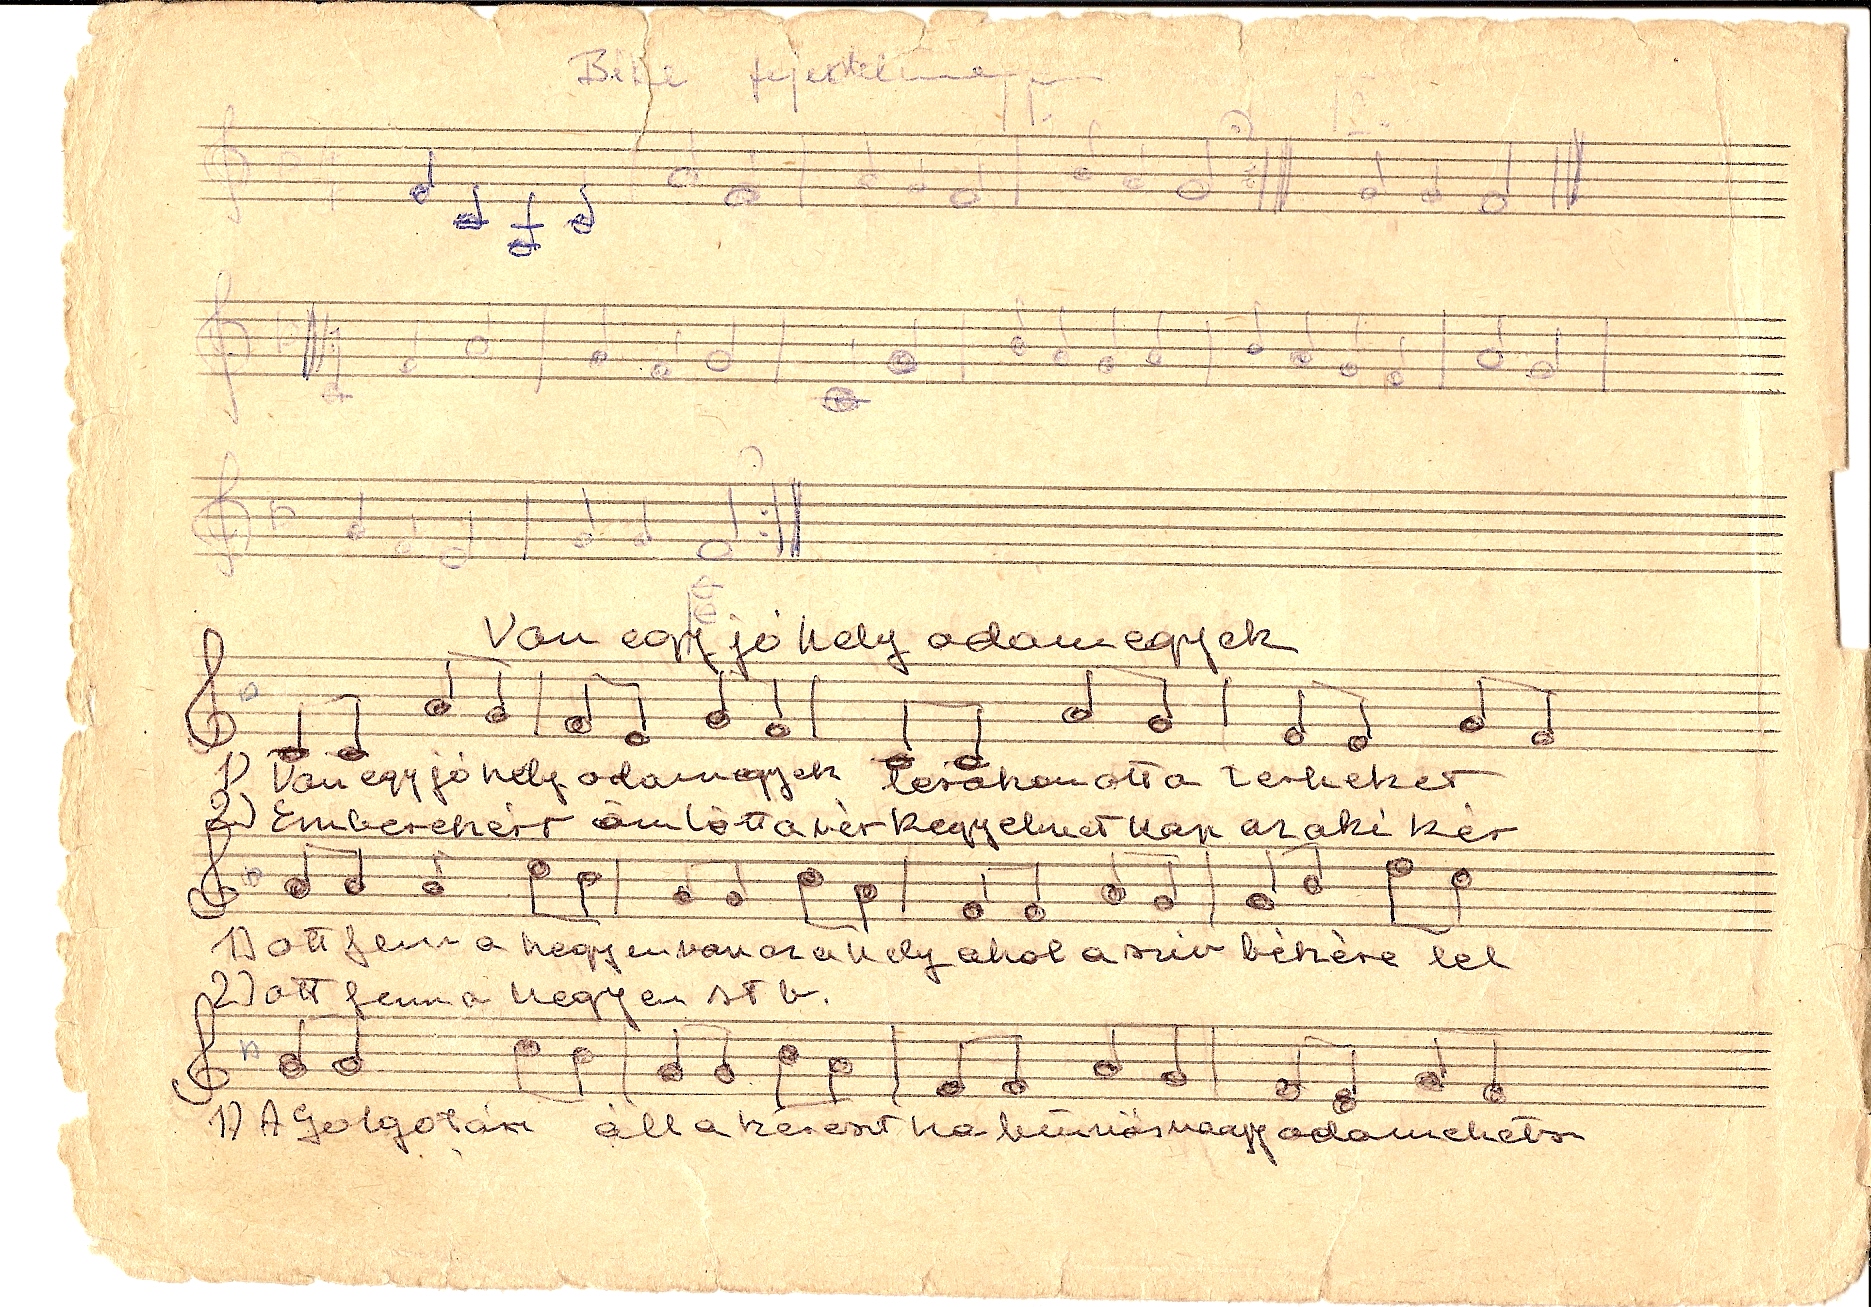 Béke fejedelme
1.
2.
Van egy jó hely odamegyek
1) Van egy jó hely odamegyek lerakom ott a terheket
2) Emberekért ömlött a vér kegyelmet kap az aki kér
1) ott fenn a hegyen van az a hely ahol a sziv békére lel
2) ott fenn a hegyen stb.
1) A Golgotán áll a kereszt ha bünös vagy odamehetsz